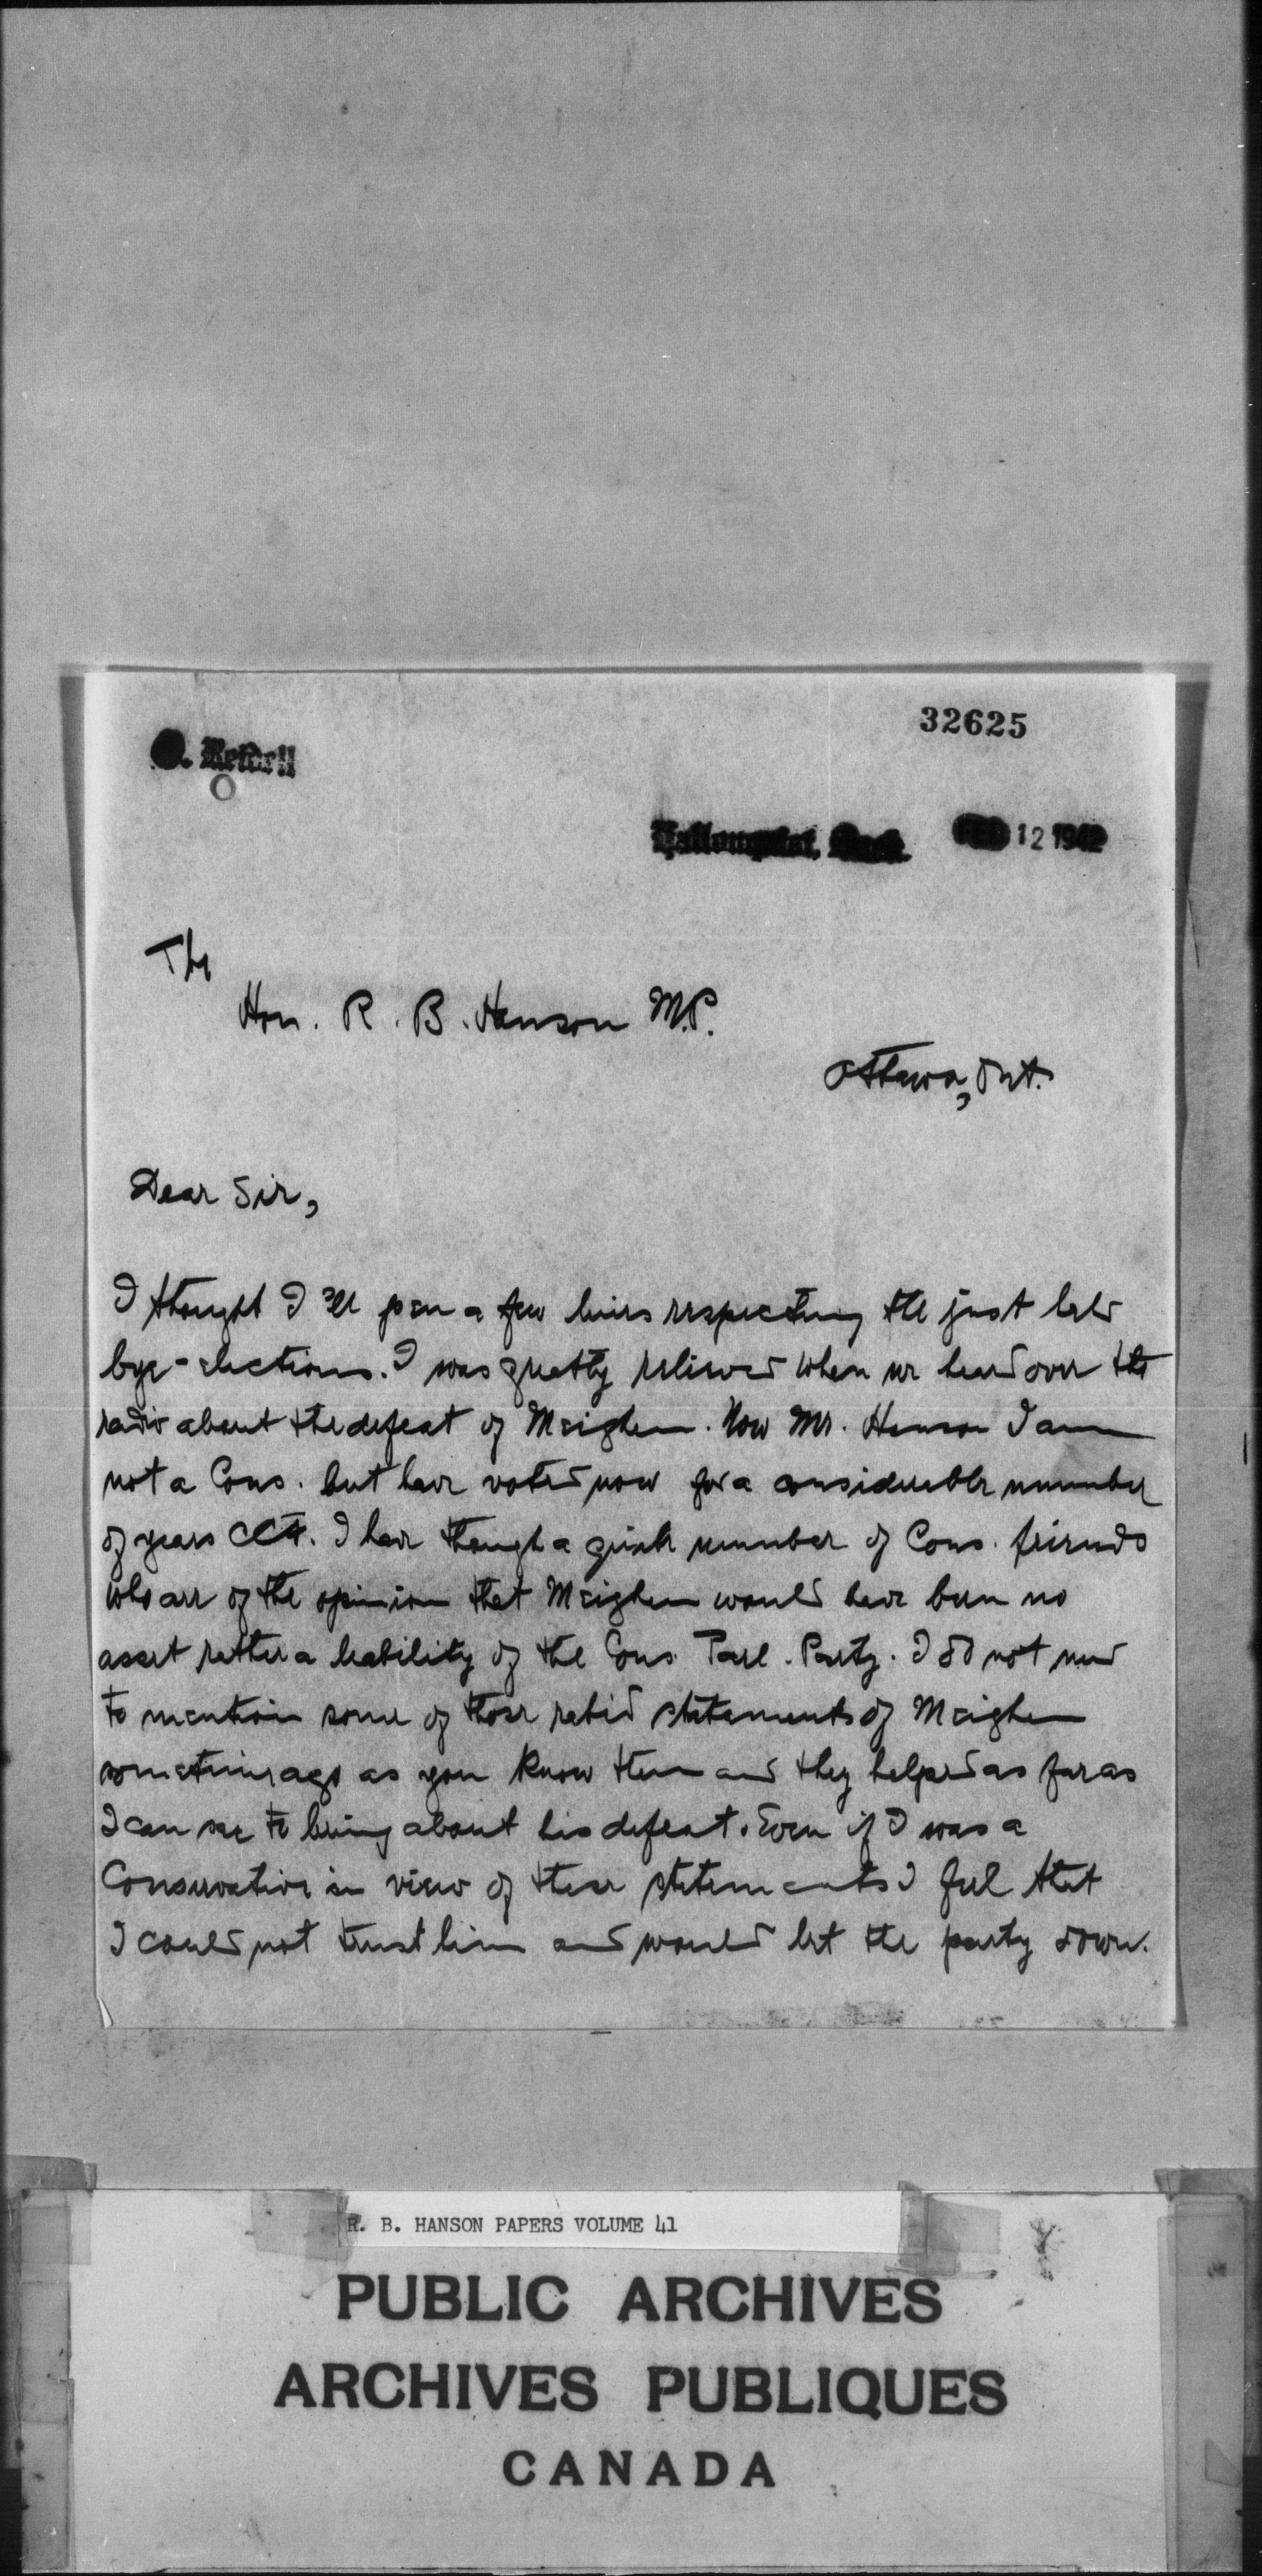 32625
Hallonquist, Sask. FEB 12 1942
The
Hon. R. B. Hanson M.P.
Ottawa, Ont.
Dear Sir,
I thought I'll pen a few lines respecting the just held
bye-elections. I was greatly relieved when we heard over the
radio about the defeat of Meighen. Now Mr. Hanson I am
not a Cons. but have voted now for a considerable number
of years CCF. I have though a quite number of Cons. friends
who are of the opinion that Meighen would have been no
asset rather a liability of the Cons. Parl. Party. I do not need
to mention some of those rabid statements of Meighen
sometime ago as you know them and they helped as far as
I can see to bring about his defeat. Even if I was a
Conservative in view of these statements I feel that
I could not trust him and would let the party down.
R. B. HANSON PAPERS VOLUME 41
PUBLIC ARCHIVES
ARCHIVES PUBLIQUES
CANADA